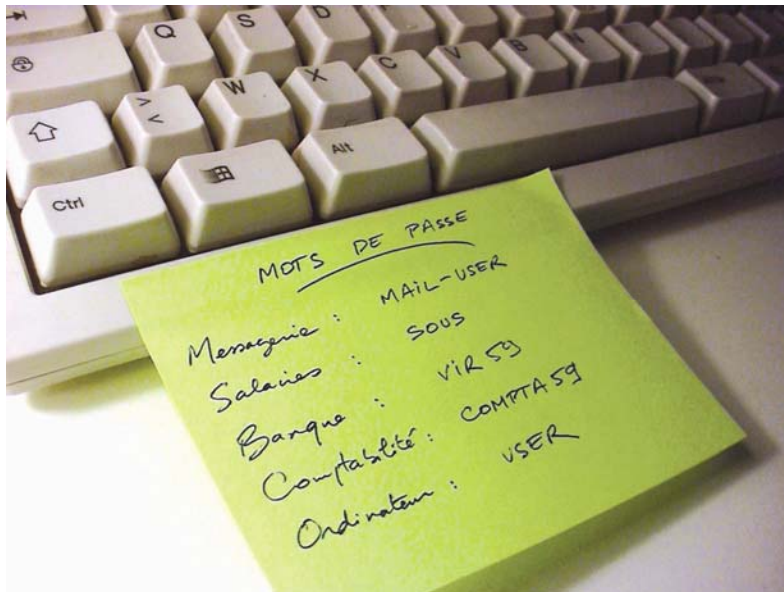 Q S D
W X C V B N
Alt
Ctrl
MOTS DE PASSE
Messagerie : MAIL-USER
Salaires : SOUS
Banque : VIR59
Comptabilité : COMPTA59
Ordinateur : USER